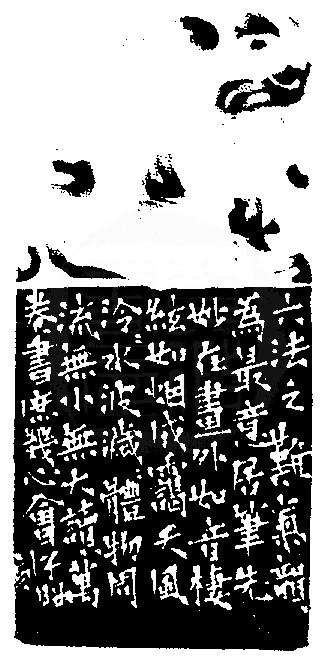 六法之難氣韻
為最意居筆先
妙在畫外如音棲
絃如烟成靄天風
泠水波濊體物周
流無小無大讀萬
卷書庶幾心會